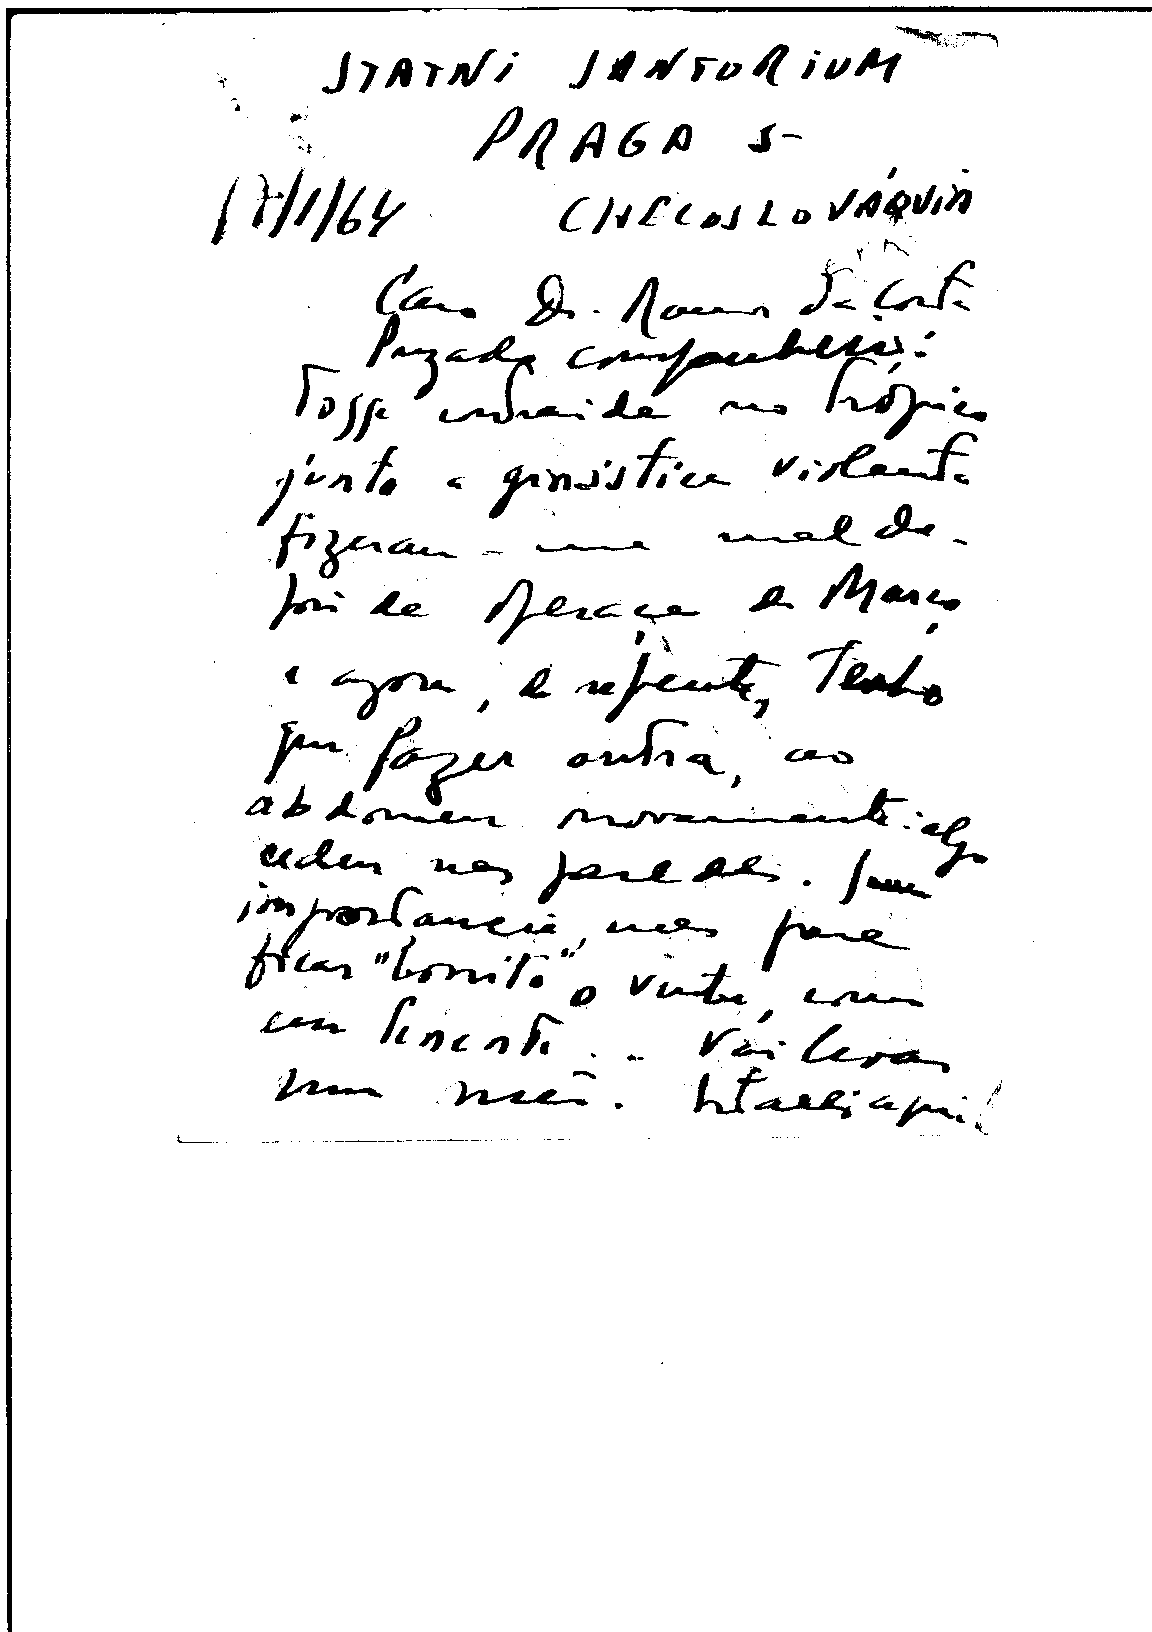 STATNI SANTORIUM
PRAGA 5
17/1/64 CHECOSLOVÁQUIA
Caro Dr. Ramos da Costa
Prezado companheiro:
Tosse contraida no trópico
junto a ginástica violenta
fizeram-me mal de-
pois da operação de Março
e agora, de repente, tenho
que fazer outra, ao
abdomen novamente: algo
cedeu nas paredes. Sem
importancia, mas para
ficar "bonito" o ventre, como
um tenente... Vai levar
um mês. Estarei aqui